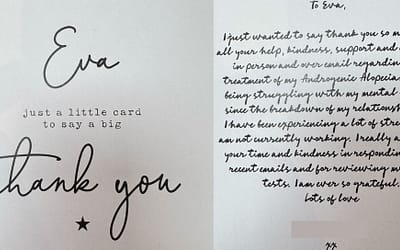 Eva
just a little card
to say a big
thank you
To Eva,
I just wanted to say thank you so m
all your help, kindness, support and
in person and over email regardin
treatment of my Androgenic Alopecia
being struggling with my mental
since the breakdown of my relations
I have been experiencing a lot of stre
am not currently working. I really a
your time and kindness in respondin
recent emails and for reviewing m
tests. I am ever so grateful.
Lots of love
xx